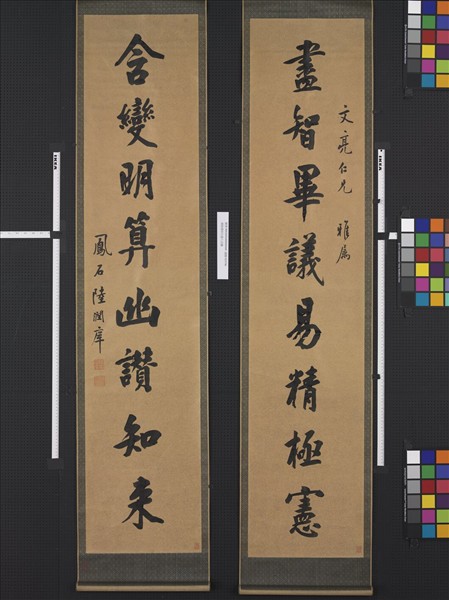 文亮仁兄 雅屬
盡智畢議易精極憲
含變明算幽讚知來
鳳石陸潤庠